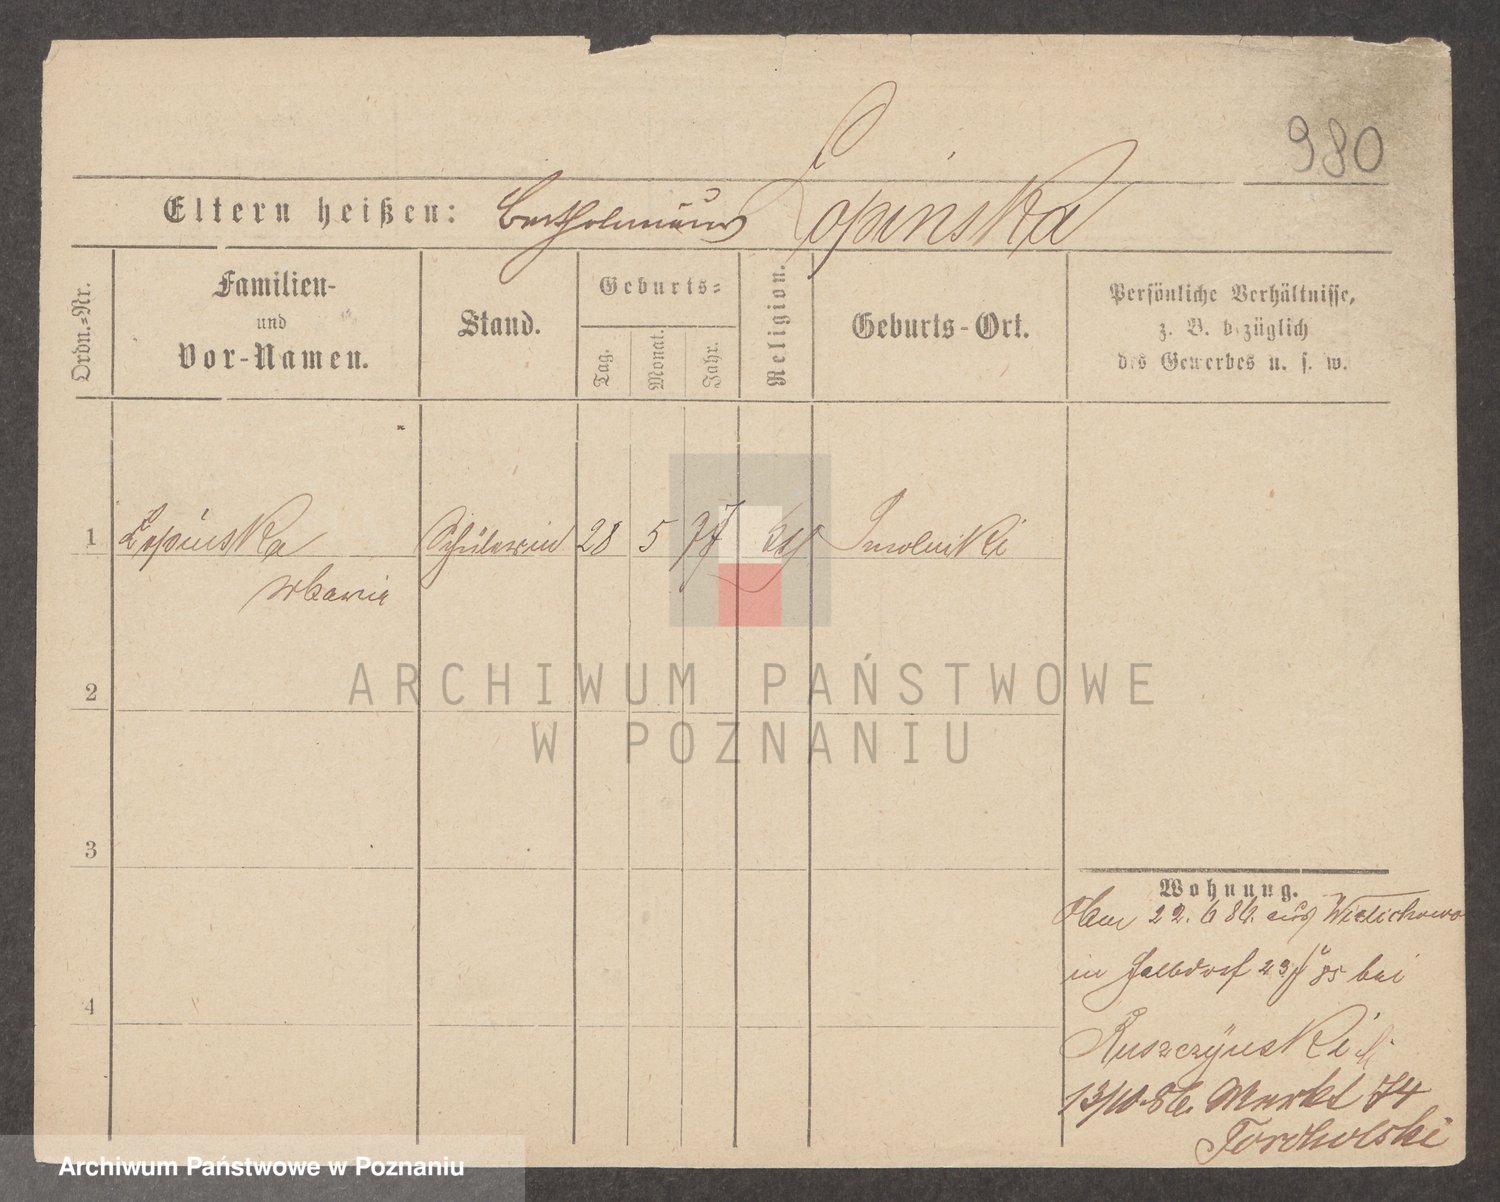 980
Lopinska
Eltern heißen: Bartholmäus
Ordn.-Nr.
Familien-
und
Vor-Namen.
Stand.
Geburts-
Tag.
Monat.
Jahr.
Religion.
Geburts-Ort.
Persönliche Verhältnisse,
z. B. bezüglich
des Gewerbes u. s. w.
1 Lopinska Schülerin 28 5 77 Smolniki
2
3
4
Wohnung.
22. 6 86. aus Wielichowo
in Halbdorf bei
Ruszczynski
13/10. 86. Markt 74
Tordholski
ARCHIWUM PAŃSTWOWE
W POZNANIU
Archiwum Państwowe w Poznaniu